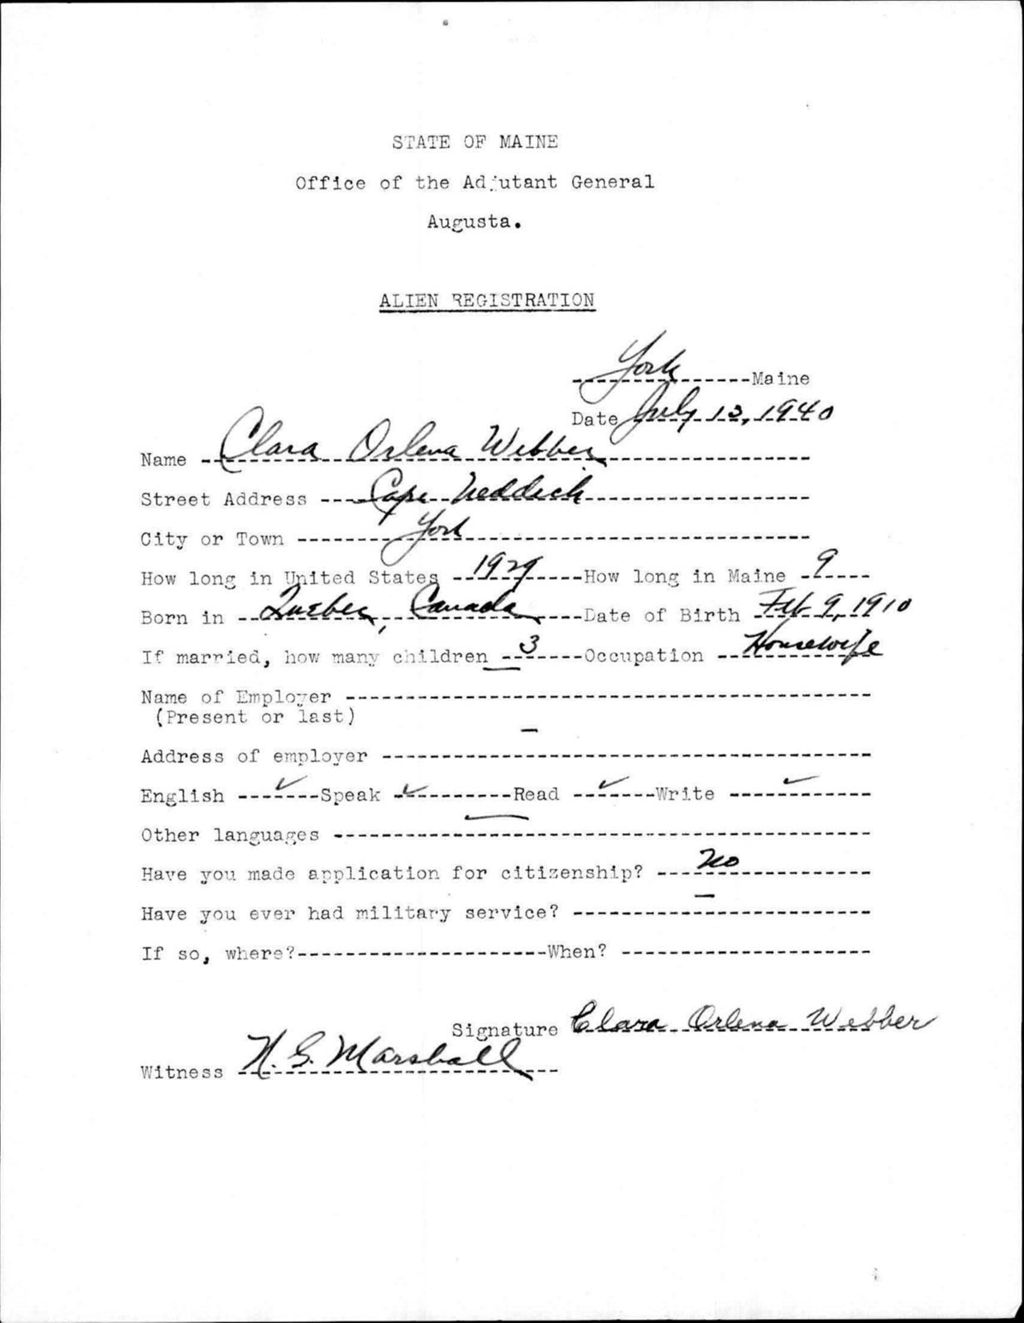 STATE OF MAINE
Office of the Adjutant General
Augusta.
ALIEN REGISTRATION
York Maine
Date July 12, 1940
Name Clara Orlena Webber
Street Address Cape Neddick
City or Town York
How long in United States 1929 How long in Maine 9
Born in Quebec, Canada Date of Birth Feb 9, 1910
If married, how many children 3 Occupation Housewife
Name of Employer
(Present or last)
Address of employer
English ✓ Speak ✓ Read ✓ Write ✓
Other languages —
Have you made application for citizenship? No
Have you ever had military service? —
If so, where? When?
Signature Clara Orlena Webber
Witness N. G. Marshall